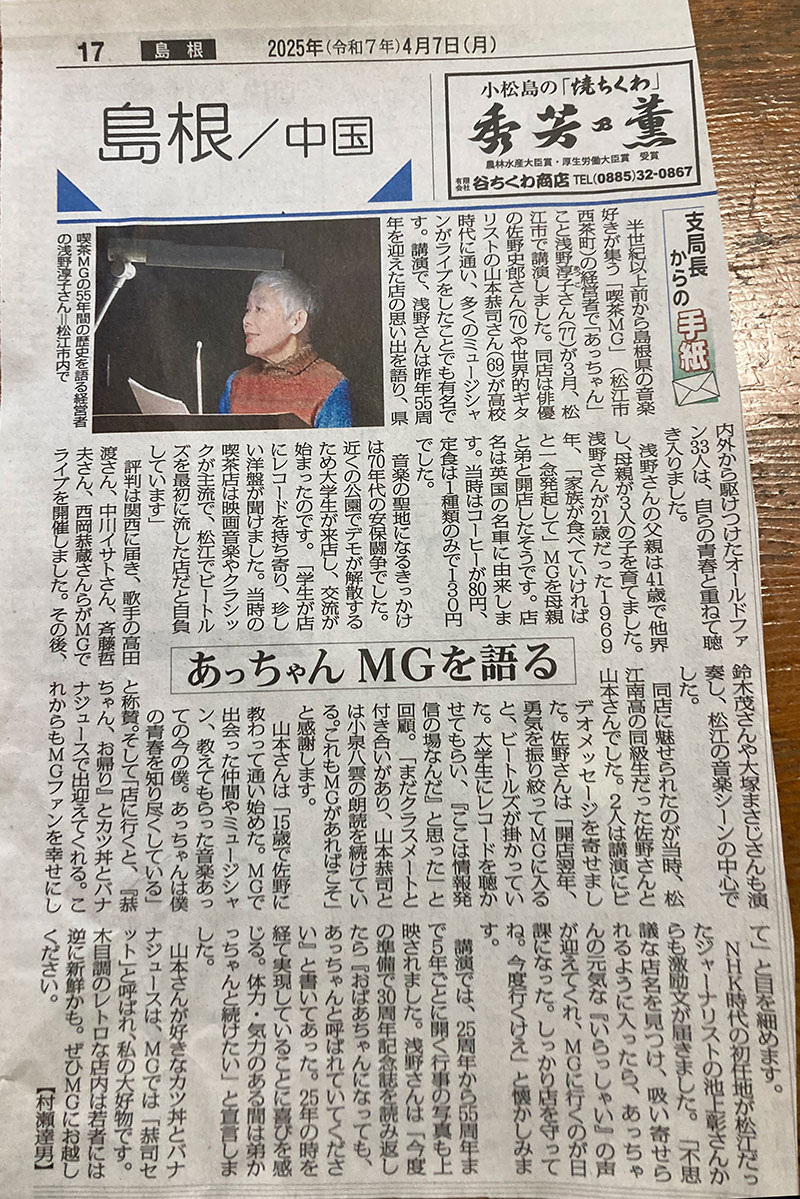 17
島根
2025年(令和7年)4月7日(月)
島根／中国
小松島の「焼ちくわ」
秀芳乃薫
農林水産大臣賞・厚生労働大臣賞 受賞
有限会社 谷ちくわ商店 TEL(0885)32-0867
支局長からの手紙
半世紀以上前から島根県の音楽
好きが集う「喫茶MG」（松江市
西茶町）の経営者で「あっちゃん」
こと浅野淳子さん(77)が3月、松
江市で講演しました。同店は俳優
の佐野史郎さん(70)や世界的ギタ
リストの山本恭司さん(69)が高校
時代に通い、多くのミュージシャ
ンがライブをしたことでも有名で
す。講演で、浅野さんは昨年55周
年を迎えた店の思い出を語り、県
喫茶MGの55年間の歴史を語る経営者
の浅野淳子さん＝松江市内で
内外から駆けつけたオールドファ
ン33人は、自らの青春と重ねて聴
き入りました。
浅野さんの父親は41歳で他界
し、母親が3人の子を育てました。
浅野さんが21歳だった1969
年、「家族が食べていければ
と一念発起して」MGを母親
と弟と開店したそうです。店
名は英国の名車に由来しま
す。当時はコーヒーが80円、
定食は1種類のみで130円
でした。
音楽の聖地になるきっかけ
は70年代の安保闘争でした。
近くの公園でデモが解散する
ため大学生が来店し、交流が
始まったのです。「学生が店
にレコードを持ち寄り、珍し
い洋盤が聞けました。当時の
喫茶店は映画音楽やクラシッ
クが主流で、松江でビートル
ズを最初に流した店だと自負
しています」
評判は関西に届き、歌手の高田
渡さん、中川イサトさん、斉藤哲
夫さん、西岡恭蔵さんらがMGで
ライブを開催しました。その後、
あっちゃん MGを語る
鈴木茂さんや大塚まさじさんも演
奏し、松江の音楽シーンの中心で
した。
同店に魅せられたのが当時、松
江南高の同級生だった佐野さんと
山本さんでした。2人は講演にビ
デオメッセージを寄せまし
た。佐野さんは「開店翌年、
勇気を振り絞ってMGに入る
と、ビートルズが掛かってい
た。大学生にレコードを聴か
せてもらい、『ここは情報発
信の場なんだ』と思った」と
回顧。「まだクラスメートと
付き合いがあり、山本恭司と
は小泉八雲の朗読を続けてい
る。これもMGがあればこそ」
と感謝します。
山本さんは「15歳で佐野に
教わって通い始めた。MGで
出会った仲間やミュージシャ
ン、教えてもらった音楽あっ
ての今の僕。あっちゃんは僕
の青春を知り尽くしている」
と称賛。そして「店に行くと、『恭
ちゃん、お帰り』とカツ丼とバナ
ナジュースで出迎えてくれる。こ
れからもMGファンを幸せにし
て」と目を細めます。
NHK時代の初任地が松江だっ
たジャーナリストの池上彰さんか
らも激励文が届きました。「不思
議な店名を見つけ、吸い寄せら
れるように入ったら、あっちゃ
んの元気な『いらっしゃい』の声
が迎えてくれ、MGに行くのが日
課になった。しっかり店を守って
ね。今度行くけえ」と懐かしみま
す。
講演では、25周年から55周年ま
で5年ごとに開く行事の写真も上
映されました。浅野さんは「今度
の準備で30周年記念誌を読み返し
たら『おばあちゃんになっても、
あっちゃんと呼ばれていてくださ
い』と書いてあった。25年の時を
経て実現していることに喜びを感
じる。体力・気力のある間は弟か
っちゃんと続けたい」と宣言しま
した。
山本さんが好きなカツ丼とバナ
ナジュースは、MGでは「恭司セ
ット」と呼ばれ、私の大好物です。
木目調のレトロな店内は若者には
逆に新鮮かも。ぜひMGにお越し
ください。
【村瀬達男】